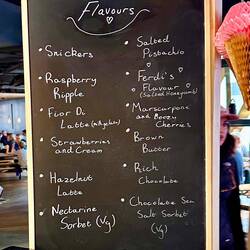 Flavours
Snickers
Raspberry
Ripple
Fior Di
Latte (milkylatte)
Strawberries
and Cream
Hazelnut
Latte
Nectarine
Sorbet (Vg)
Salted
Pistachio
Ferdi's
Flavour
(Salted Honeycomb)
Marscarpone
and Boozy
Cherries
Brown
Butter
Rich
Chocolate
Chocolate Sea
Salt Sorbet
(Vg)